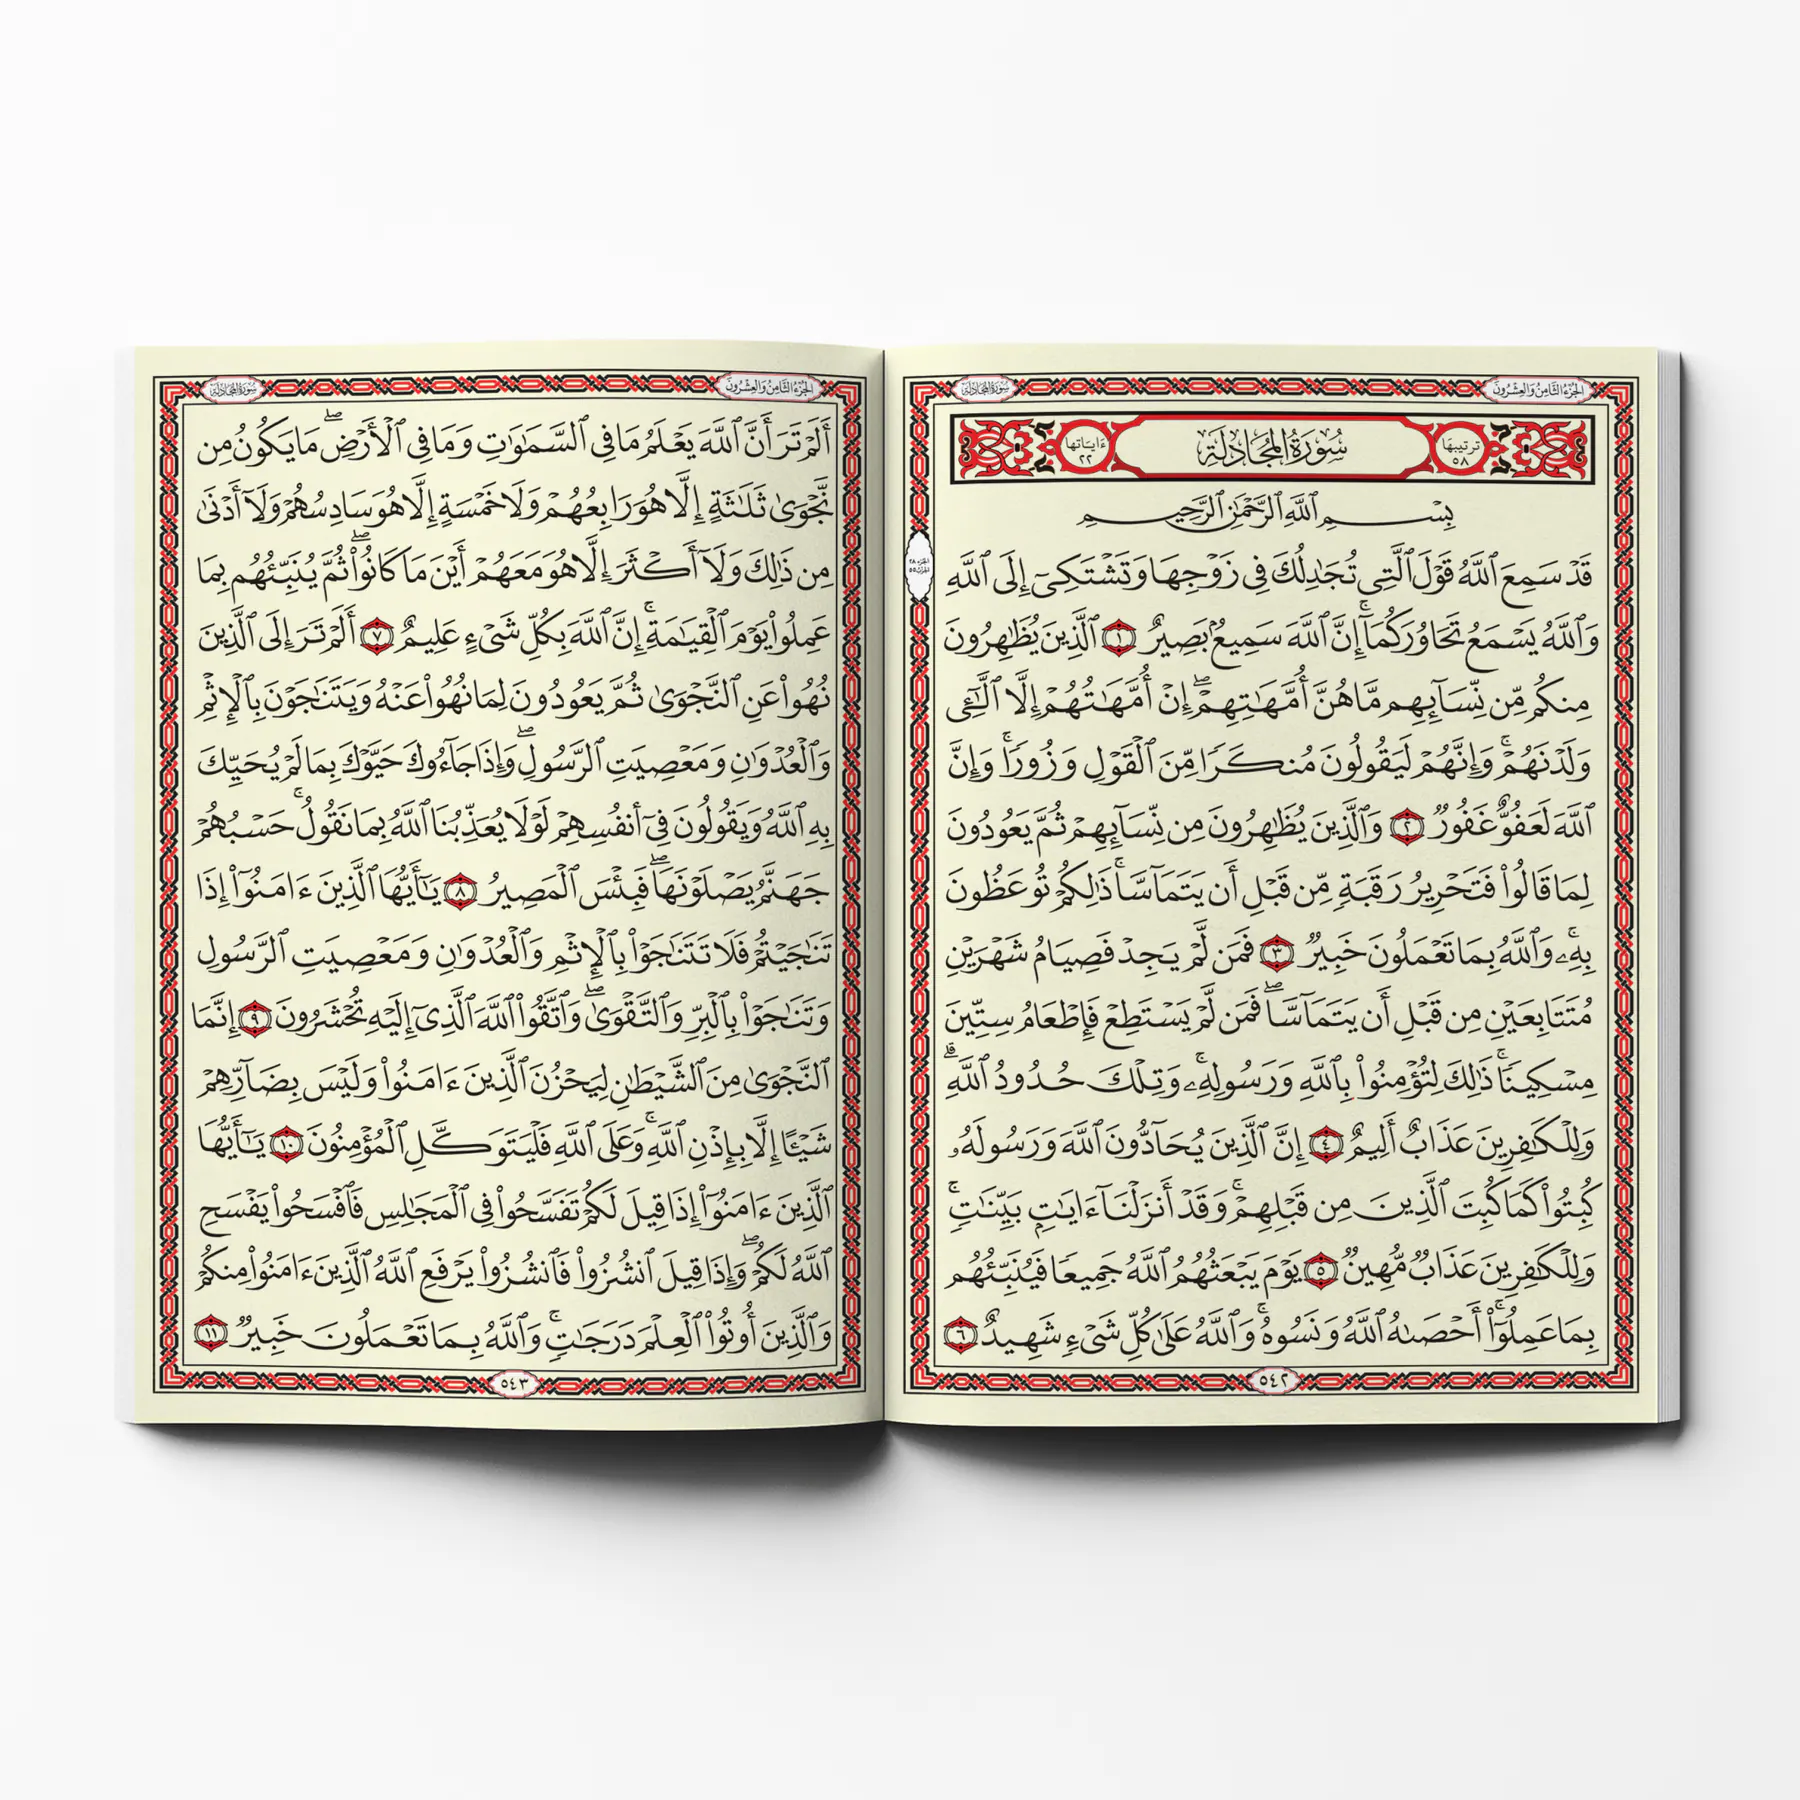 الجزء الثامن والعشرون
سورة المجادلة
ترتيبها ٥٨
سُورَةُ المُجَادلَةِ
ءَاياتها ٢٢
بِسْمِ ٱللَّهِ ٱلرَّحْمَٰنِ ٱلرَّحِيمِ
قَدْ سَمِعَ ٱللَّهُ قَوْلَ ٱلَّتِى تُجَٰدِلُكَ فِى زَوْجِهَا وَتَشْتَكِىٓ إِلَى ٱللَّهِ
وَٱللَّهُ يَسْمَعُ تَحَاوُرَكُمَآ ۚ إِنَّ ٱللَّهَ سَمِيعٌۢ بَصِيرٌ ١ ٱلَّذِينَ يُظَٰهِرُونَ
مِنكُم مِّن نِّسَآئِهِم مَّا هُنَّ أُمَّهَٰتِهِمْ ۖ إِنْ أُمَّهَٰتُهُمْ إِلَّا ٱلَّٰٓـِٔى
وَلَدْنَهُمْ ۚ وَإِنَّهُمْ لَيَقُولُونَ مُنكَرًا مِّنَ ٱلْقَوْلِ وَزُورًا ۚ وَإِنَّ
ٱللَّهَ لَعَفُوٌّ غَفُورٌ ٢ وَٱلَّذِينَ يُظَٰهِرُونَ مِن نِّسَآئِهِمْ ثُمَّ يَعُودُونَ
لِمَا قَالُوا۟ فَتَحْرِيرُ رَقَبَةٍ مِّن قَبْلِ أَن يَتَمَآسَّا ۚ ذَٰلِكُمْ تُوعَظُونَ
بِهِۦ ۚ وَٱللَّهُ بِمَا تَعْمَلُونَ خَبِيرٌ ٣ فَمَن لَّمْ يَجِدْ فَصِيَامُ شَهْرَيْنِ
مُتَتَابِعَيْنِ مِن قَبْلِ أَن يَتَمَآسَّا ۖ فَمَن لَّمْ يَسْتَطِعْ فَإِطْعَامُ سِتِّينَ
مِسْكِينًا ۚ ذَٰلِكَ لِتُؤْمِنُوا۟ بِٱللَّهِ وَرَسُولِهِۦ ۚ وَتِلْكَ حُدُودُ ٱللَّهِ ۗ
وَلِلْكَٰفِرِينَ عَذَابٌ أَلِيمٌ ٤ إِنَّ ٱلَّذِينَ يُحَآدُّونَ ٱللَّهَ وَرَسُولَهُۥ
كُبِتُوا۟ كَمَا كُبِتَ ٱلَّذِينَ مِن قَبْلِهِمْ ۚ وَقَدْ أَنزَلْنَآ ءَايَٰتٍۭ بَيِّنَٰتٍ ۚ
وَلِلْكَٰفِرِينَ عَذَابٌ مُّهِينٌ ٥ يَوْمَ يَبْعَثُهُمُ ٱللَّهُ جَمِيعًا فَيُنَبِّئُهُم
بِمَا عَمِلُوٓا۟ ۚ أَحْصَىٰهُ ٱللَّهُ وَنَسُوهُ ۚ وَٱللَّهُ عَلَىٰ كُلِّ شَىْءٍ شَهِيدٌ ٦
٥٤٢
الجزء الثامن والعشرون
سورة المجادلة
أَلَمْ تَرَ أَنَّ ٱللَّهَ يَعْلَمُ مَا فِى ٱلسَّمَٰوَٰتِ وَمَا فِى ٱلْأَرْضِ ۖ مَا يَكُونُ مِن
نَّجْوَىٰ ثَلَٰثَةٍ إِلَّا هُوَ رَابِعُهُمْ وَلَا خَمْسَةٍ إِلَّا هُوَ سَادِسُهُمْ وَلَآ أَدْنَىٰ
مِن ذَٰلِكَ وَلَآ أَكْثَرَ إِلَّا هُوَ مَعَهُمْ أَيْنَ مَا كَانُوا۟ ۖ ثُمَّ يُنَبِّئُهُم بِمَا
عَمِلُوا۟ يَوْمَ ٱلْقِيَٰمَةِ ۚ إِنَّ ٱللَّهَ بِكُلِّ شَىْءٍ عَلِيمٌ ٧ أَلَمْ تَرَ إِلَى ٱلَّذِينَ
نُهُوا۟ عَنِ ٱلنَّجْوَىٰ ثُمَّ يَعُودُونَ لِمَا نُهُوا۟ عَنْهُ وَيَتَنَٰجَوْنَ بِٱلْإِثْمِ
وَٱلْعُدْوَٰنِ وَمَعْصِيَتِ ٱلرَّسُولِ ۖ وَإِذَا جَآءُوكَ حَيَّوْكَ بِمَا لَمْ يُحَيِّكَ
بِهِ ٱللَّهُ وَيَقُولُونَ فِىٓ أَنفُسِهِمْ لَوْلَا يُعَذِّبُنَا ٱللَّهُ بِمَا نَقُولُ ۚ حَسْبُهُمْ
جَهَنَّمُ يَصْلَوْنَهَا ۖ فَبِئْسَ ٱلْمَصِيرُ ٨ يَٰٓأَيُّهَا ٱلَّذِينَ ءَامَنُوٓا۟ إِذَا
تَنَٰجَيْتُمْ فَلَا تَتَنَٰجَوْا۟ بِٱلْإِثْمِ وَٱلْعُدْوَٰنِ وَمَعْصِيَتِ ٱلرَّسُولِ
وَتَنَٰجَوْا۟ بِٱلْبِرِّ وَٱلتَّقْوَىٰ ۖ وَٱتَّقُوا۟ ٱللَّهَ ٱلَّذِىٓ إِلَيْهِ تُحْشَرُونَ ٩ إِنَّمَا
ٱلنَّجْوَىٰ مِنَ ٱلشَّيْطَٰنِ لِيَحْزُنَ ٱلَّذِينَ ءَامَنُوا۟ وَلَيْسَ بِضَآرِّهِمْ
شَيْـًٔا إِلَّا بِإِذْنِ ٱللَّهِ ۚ وَعَلَى ٱللَّهِ فَلْيَتَوَكَّلِ ٱلْمُؤْمِنُونَ ١٠ يَٰٓأَيُّهَا
ٱلَّذِينَ ءَامَنُوٓا۟ إِذَا قِيلَ لَكُمْ تَفَسَّحُوا۟ فِى ٱلْمَجَٰلِسِ فَٱفْسَحُوا۟ يَفْسَحِ
ٱللَّهُ لَكُمْ ۖ وَإِذَا قِيلَ ٱنشُزُوا۟ فَٱنشُزُوا۟ يَرْفَعِ ٱللَّهُ ٱلَّذِينَ ءَامَنُوا۟ مِنكُمْ
وَٱلَّذِينَ أُوتُوا۟ ٱلْعِلْمَ دَرَجَٰتٍ ۚ وَٱللَّهُ بِمَا تَعْمَلُونَ خَبِيرٌ ١١
٥٤٣